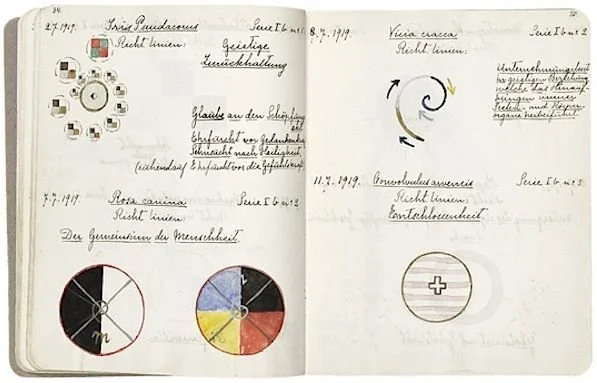 34.
2.7.1919. Iris Pseudacorus Serie I b n:r 1
Richtlinien: Geistige
Zurückhaltung
Glaube an den Schöpfung
Ehrfurcht vor Gedanken
Sehnsucht nach Heiligkeit
(ruhendauf) Ehrfurcht vor die Gefühls
7.7.1919. Rosa canina Serie I b n:r 2
Richtlinien:
Der Gemeinsinn der Menschheit.
m
35.
8.7.1919. Vicia cracca Serie I b n:r 2
Richtlinien:
Unternehmungslust
in geistigen Beziehung
welche das
unserer
Seelen- und Körper-
organe herbeiführt
11.7.1919. Convolvulus arvensis Serie I b n:r 3
Richtlinien:
Entschlossenheit